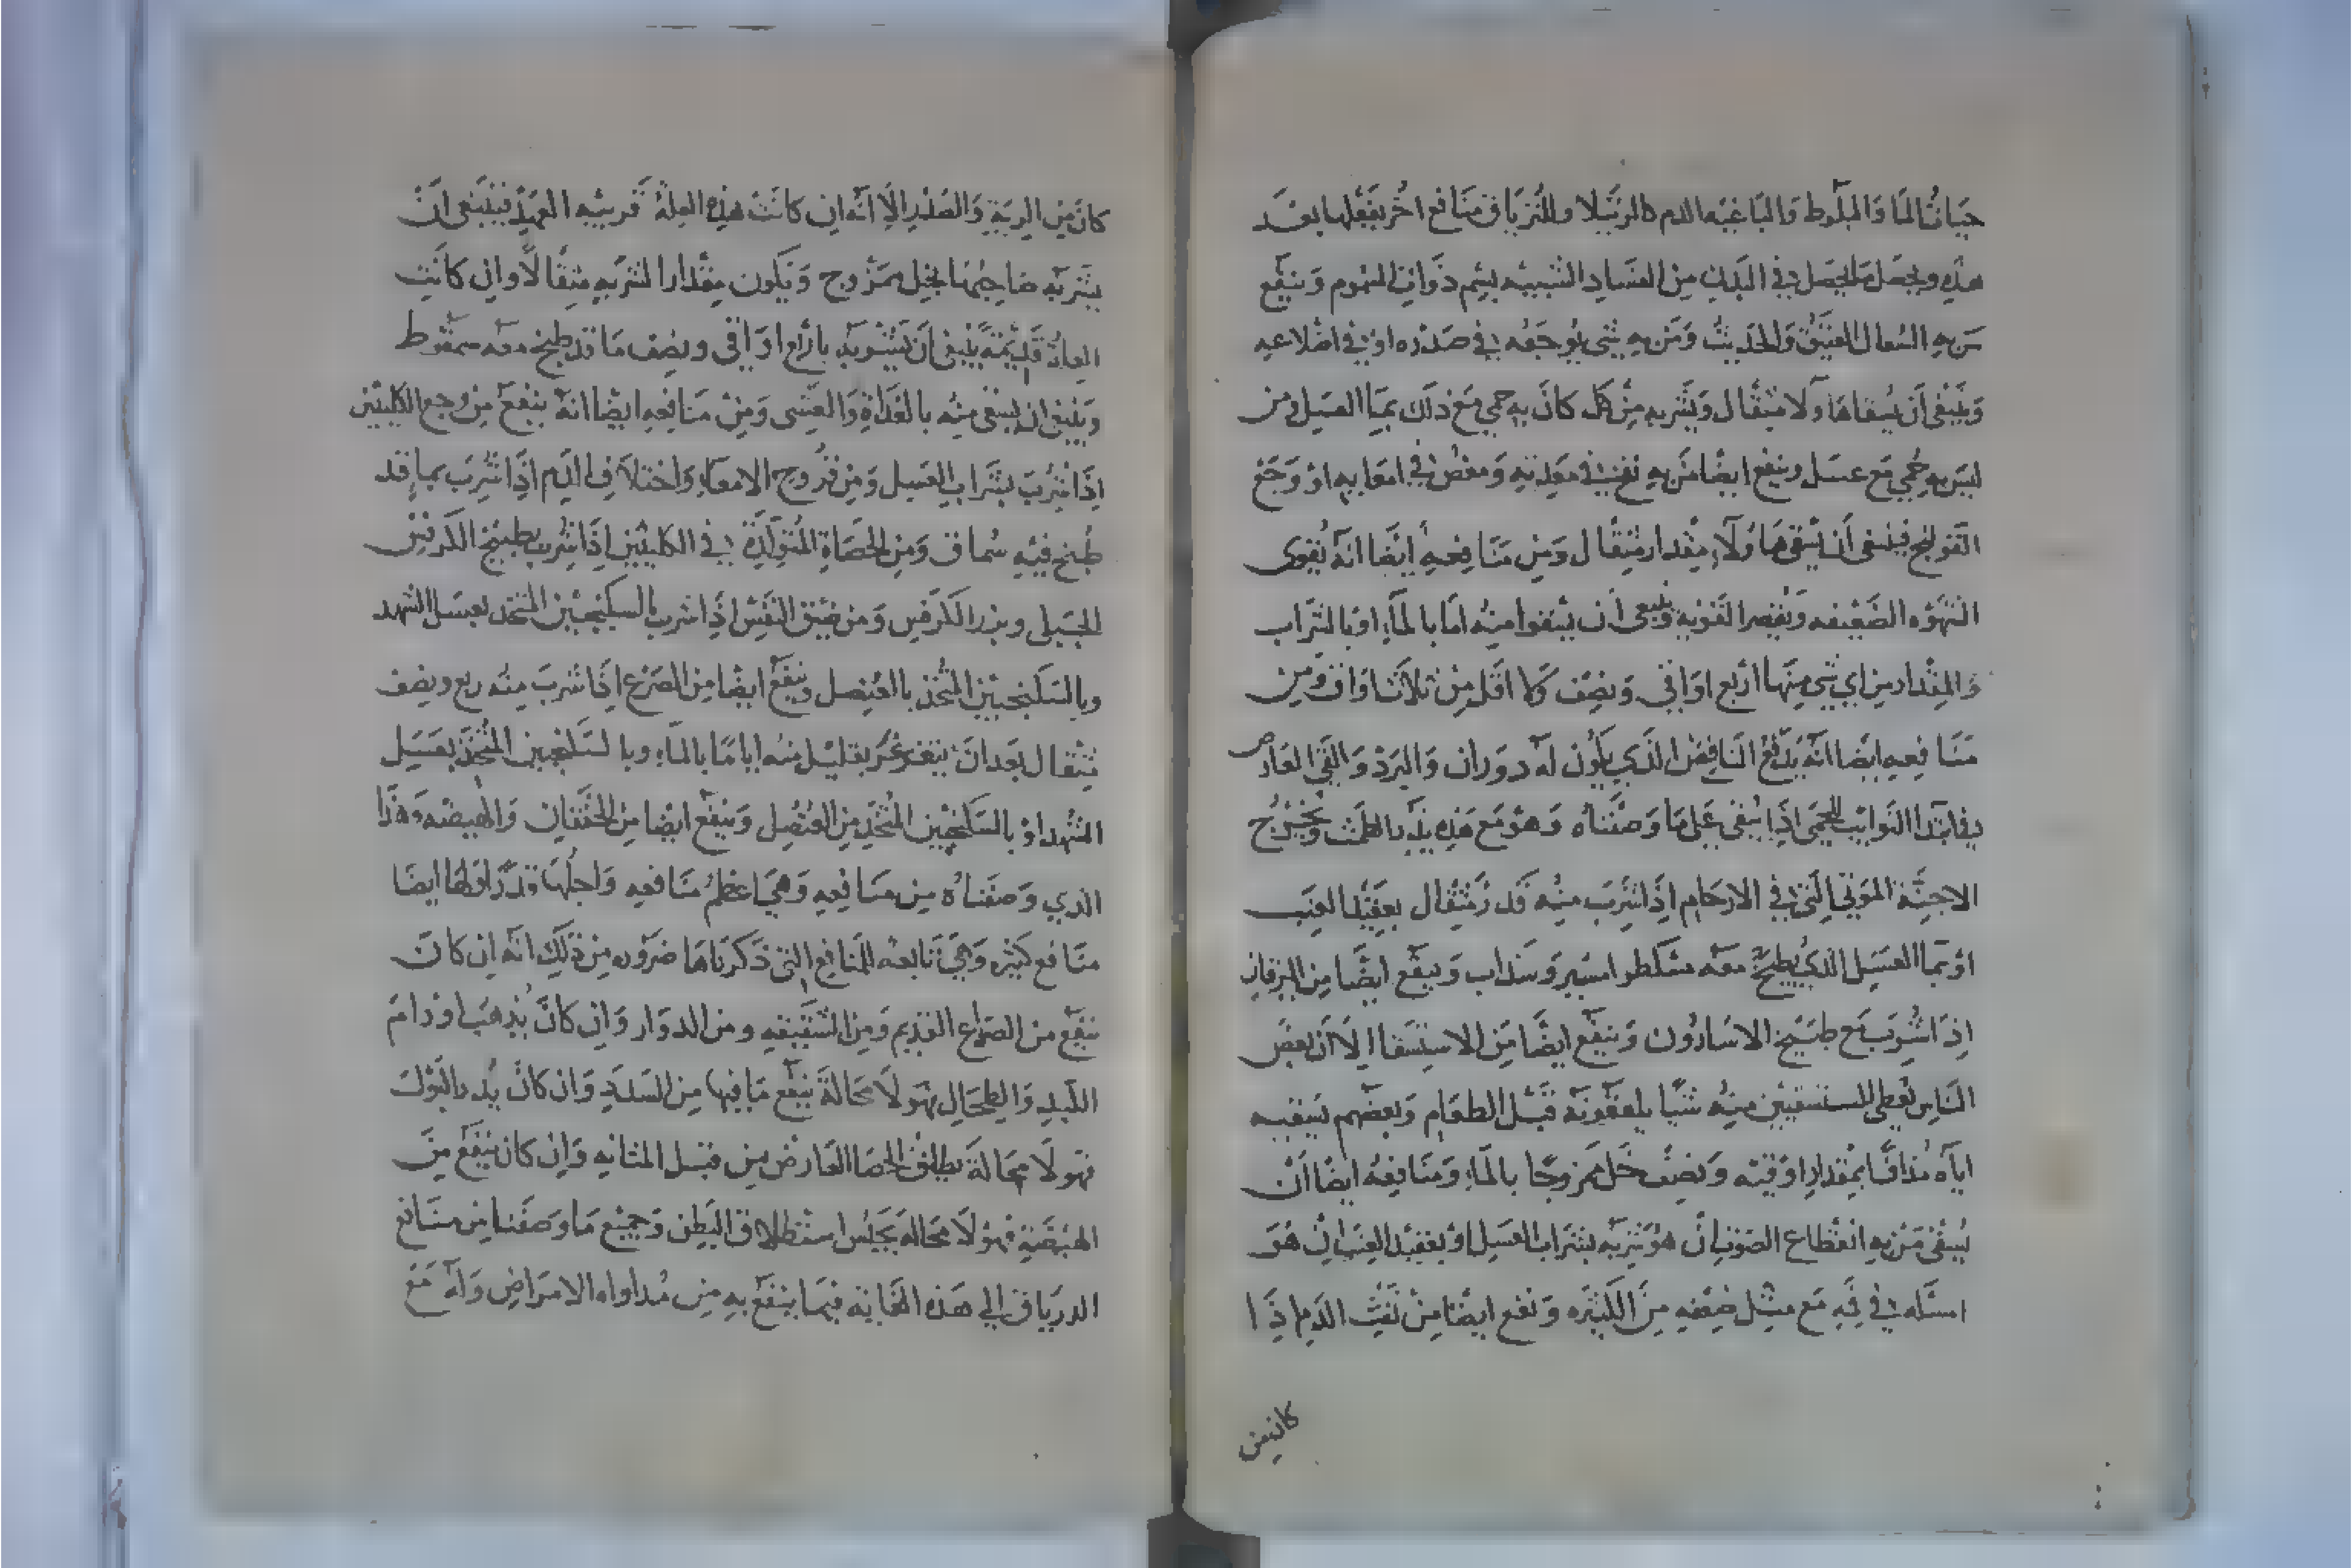 حيات الما والبلوط والباغيه الدم كالرتيلا وللترياق منافع اخر يفعلها بعد
هذه ويحصل ما يحصل في البدن من الفساد الشبيه بسم ذوات السموم وينفع
من به السعال العتيق والحديث ومن به شي يوجعه في صدره او في اضلاعه
وينبغي ان يسقا هاولا مثقال ويشربه من كل كان به حمي مع ذلك بما العسل ومن
ليس به حمي مع عسل وينفع ايضا من به نفخ في معدته ومغص في امعايه او وجع
القولنج فينبغي ان يسقي هاولاء مقدار مثقال ومن منافعه ايضا انه يقوي
الشهوه الضعيفه وينبغي ان يسقوا منه اما بالماء او بالشراب
والمقدار من اي شي منها اربع اواقي ونصف ولا اقل من ثلاث اواق ومن
منافعه ايضا انه يدفع النافض الذي يكون له دوران والبرد والقي العارض
في ابتدا النوايب للحمي اذا سقي علي ما وصفناه وهو مع هذه يدر الطمث ويخرج
الاجنه الموتي التي في الارحام اذا شرب منه قدر مثقال بعقيد العنب
او بما العسل الذي يطبخ معه مشكطرامشير وسذاب وينفع ايضا من اليرقان
اذا شرب مع طبيخ الاسارون وينفع ايضا من الاستسقا الا ان بعض
الناس يعطي المستسقيين منه شيا يلعقونه قبل الطعام وبعضهم يسقيه
اياه مذافا بمقدار اوقيه ونصف خل ممزوجا بالماء ومنافعه ايضا ان
يسقي من به انقطاع الصوت ان هو شربه بشراب العسل او بعقيد العنب ان هو
امسكه في فيه مع مثل ضعفه من الكثيره ونفع ايضا من نفث الدم اذا
كان من
كان من الريه والصدر الا انه ان كانت هذه العله قريبه العهد فينبغي ان
يشربه صاحبها بخل ممزوج ويكون مقدار الشربه مثقالا وان كانت
العله قديمه ينبغي ان يشربه باربع اواقي ونصف ما قد طبخ معه سمقوط
وينبغي ان يسقي منه بالغداة والعشي ومن منافعه ايضا انه ينفع من وجع الكليتين
اذا شرب بشراب العسل ومن قروح الامعاء واختلاف الدم اذا شرب بما قد
طبخ فيه سماق ومن الحصاة المتولدة في الكليتين اذا شرب بطبيخ الكرفس
الجبلي وبزر الكرفس ومن ضيق النفس اذا شرب بالسكنجبين المتخذ بعسل الشهد
وبالسكنجبين المتخذ بالعنصل وينفع ايضا من الصرع اذا شرب منه ربع ونصف
مثقال بعد ان يتغرغر بقليل منه اياما بالماء وبالسكنجبين المتخذ بعسل
الشهد او بالسكنجبين المتخذ من العنصل وينفع ايضا من الخفقان والهيضه وهذا
الذي وصفناه من منافعه وهي اعظم منافعه واجلها قدرا ولها ايضا
منافع كثيره وهي تابعه للمنافع التي ذكرناها ضروره من ذلك انه ان كان
ينفع من الصداع القديم ومن الشقيقه ومن الدوار وان كان يذهب اورام
الكبد والطحال فهو لا محالة ينفع ما فيها من السدد وان كان يدر البول
فهو لا محالة يطلق الحصا العارض من قبل المثانه وان كان ينفع من
الهيضه فهو لا محالة يحبس استطلاق البطن وجميع ما وصفنا من منافع
الدرياق الي هذه الغايه فيما ينفع به من مداواه الامراض وله مع